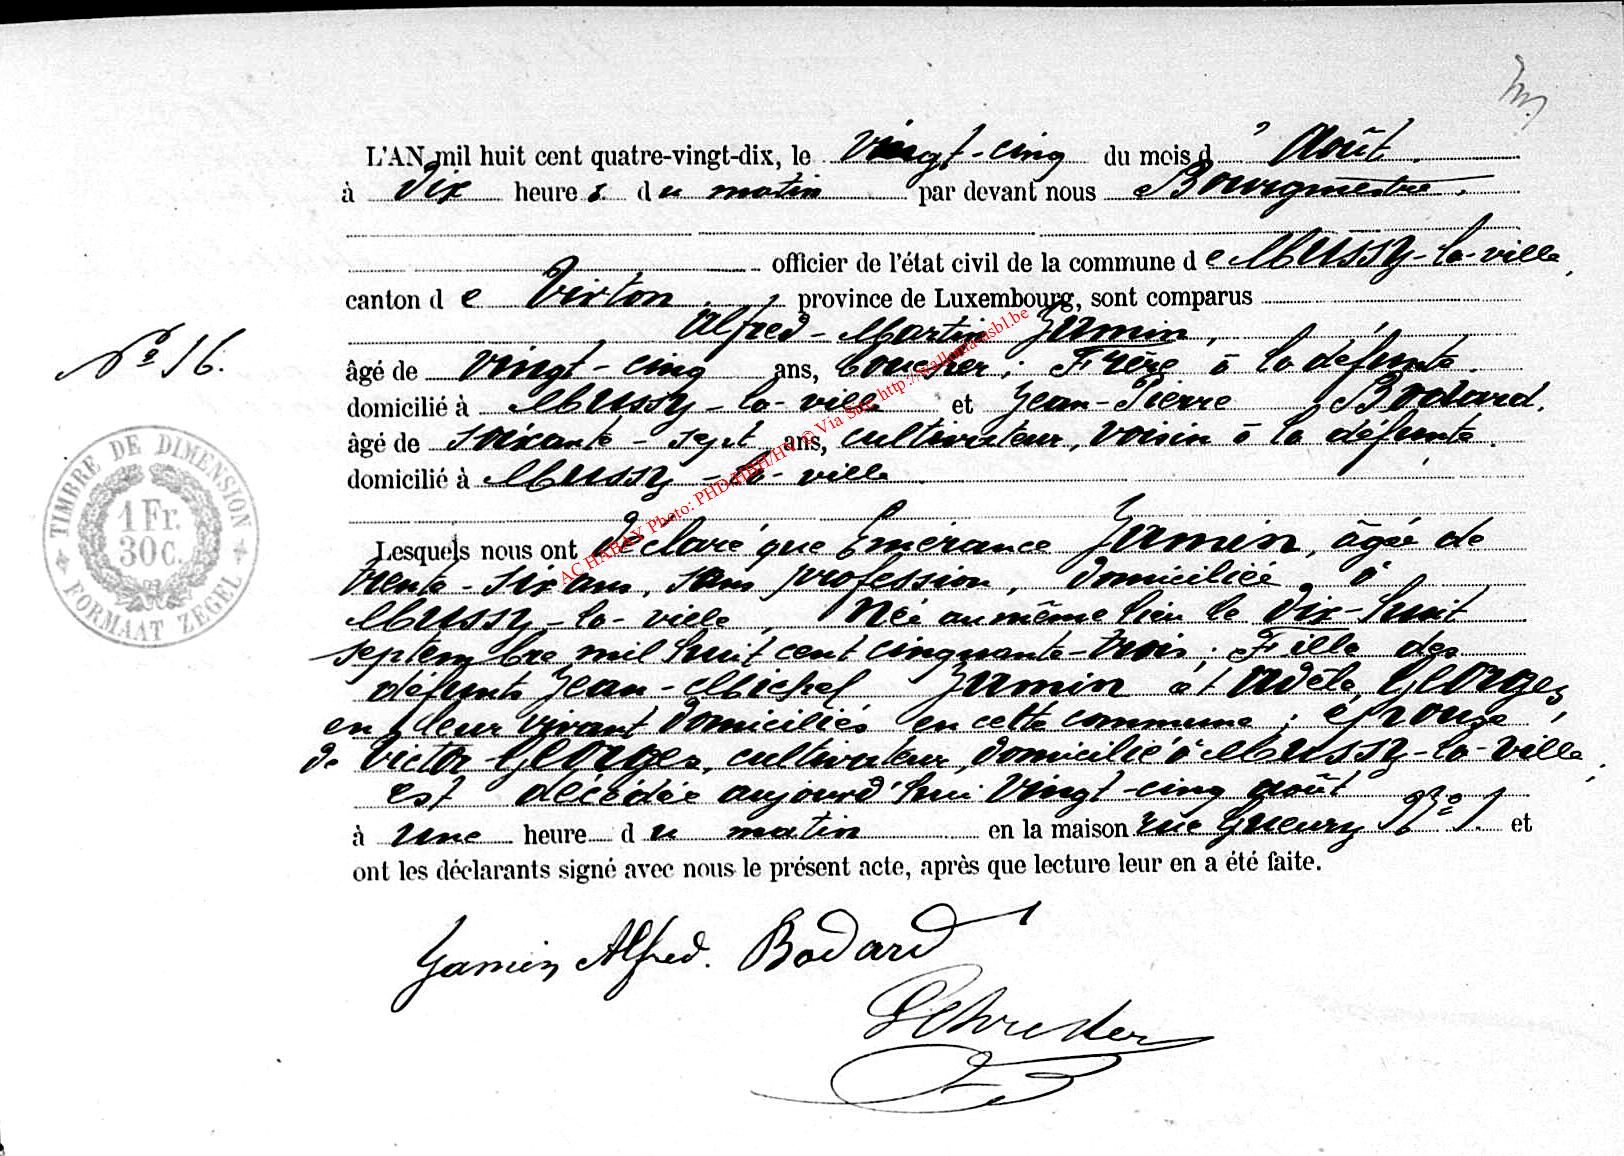 L'AN mil huit cent quatre-vingt-dix, le vingt-cinq du mois d' Août.
à dix heures. du matin par devant nous Bourgmestre.
officier de l'état civil de la commune de Mussy-la-ville,
canton de Virton. province de Luxembourg, sont comparus
Alfred-Martin Jamin,
N° 16.
âgé de vingt-cinq ans, boucher; Frère à la défunte.
domicilié à Mussy-la-ville et Jean-Pierre Bodard.
âgé de soixante-sept ans, cultivateur, voisin à la défunte.
domicilié à Mussy-la-ville
TIMBRE DE DIMENSION
1 Fr.
30 C.
FORMAAT ZEGEL
Lesquels nous ont déclaré que Emérance Jamin, âgée de
trente-six ans, sans profession, domiciliée à
Mussy-la-ville, Née au même lieu le dix-huit
septembre mil huit cent cinquante-trois; Fille des
défunts Jean-Michel Jamin et Adèle Georges,
en leur vivant domiciliés en cette commune; épouse
de Victor Georges, cultivateur, domicilié à Mussy-la-ville;
est décédée aujourd'hui vingt-cinq août
à une heure du matin en la maison rue Gueury N° 1. et
ont les déclarants signé avec nous le présent acte, après que lecture leur en a été faite.
Jamin Alfred. Bodard
AC HABAY Photo: PHD/HBH/HV © Via Site http://wallonia-asbl.be